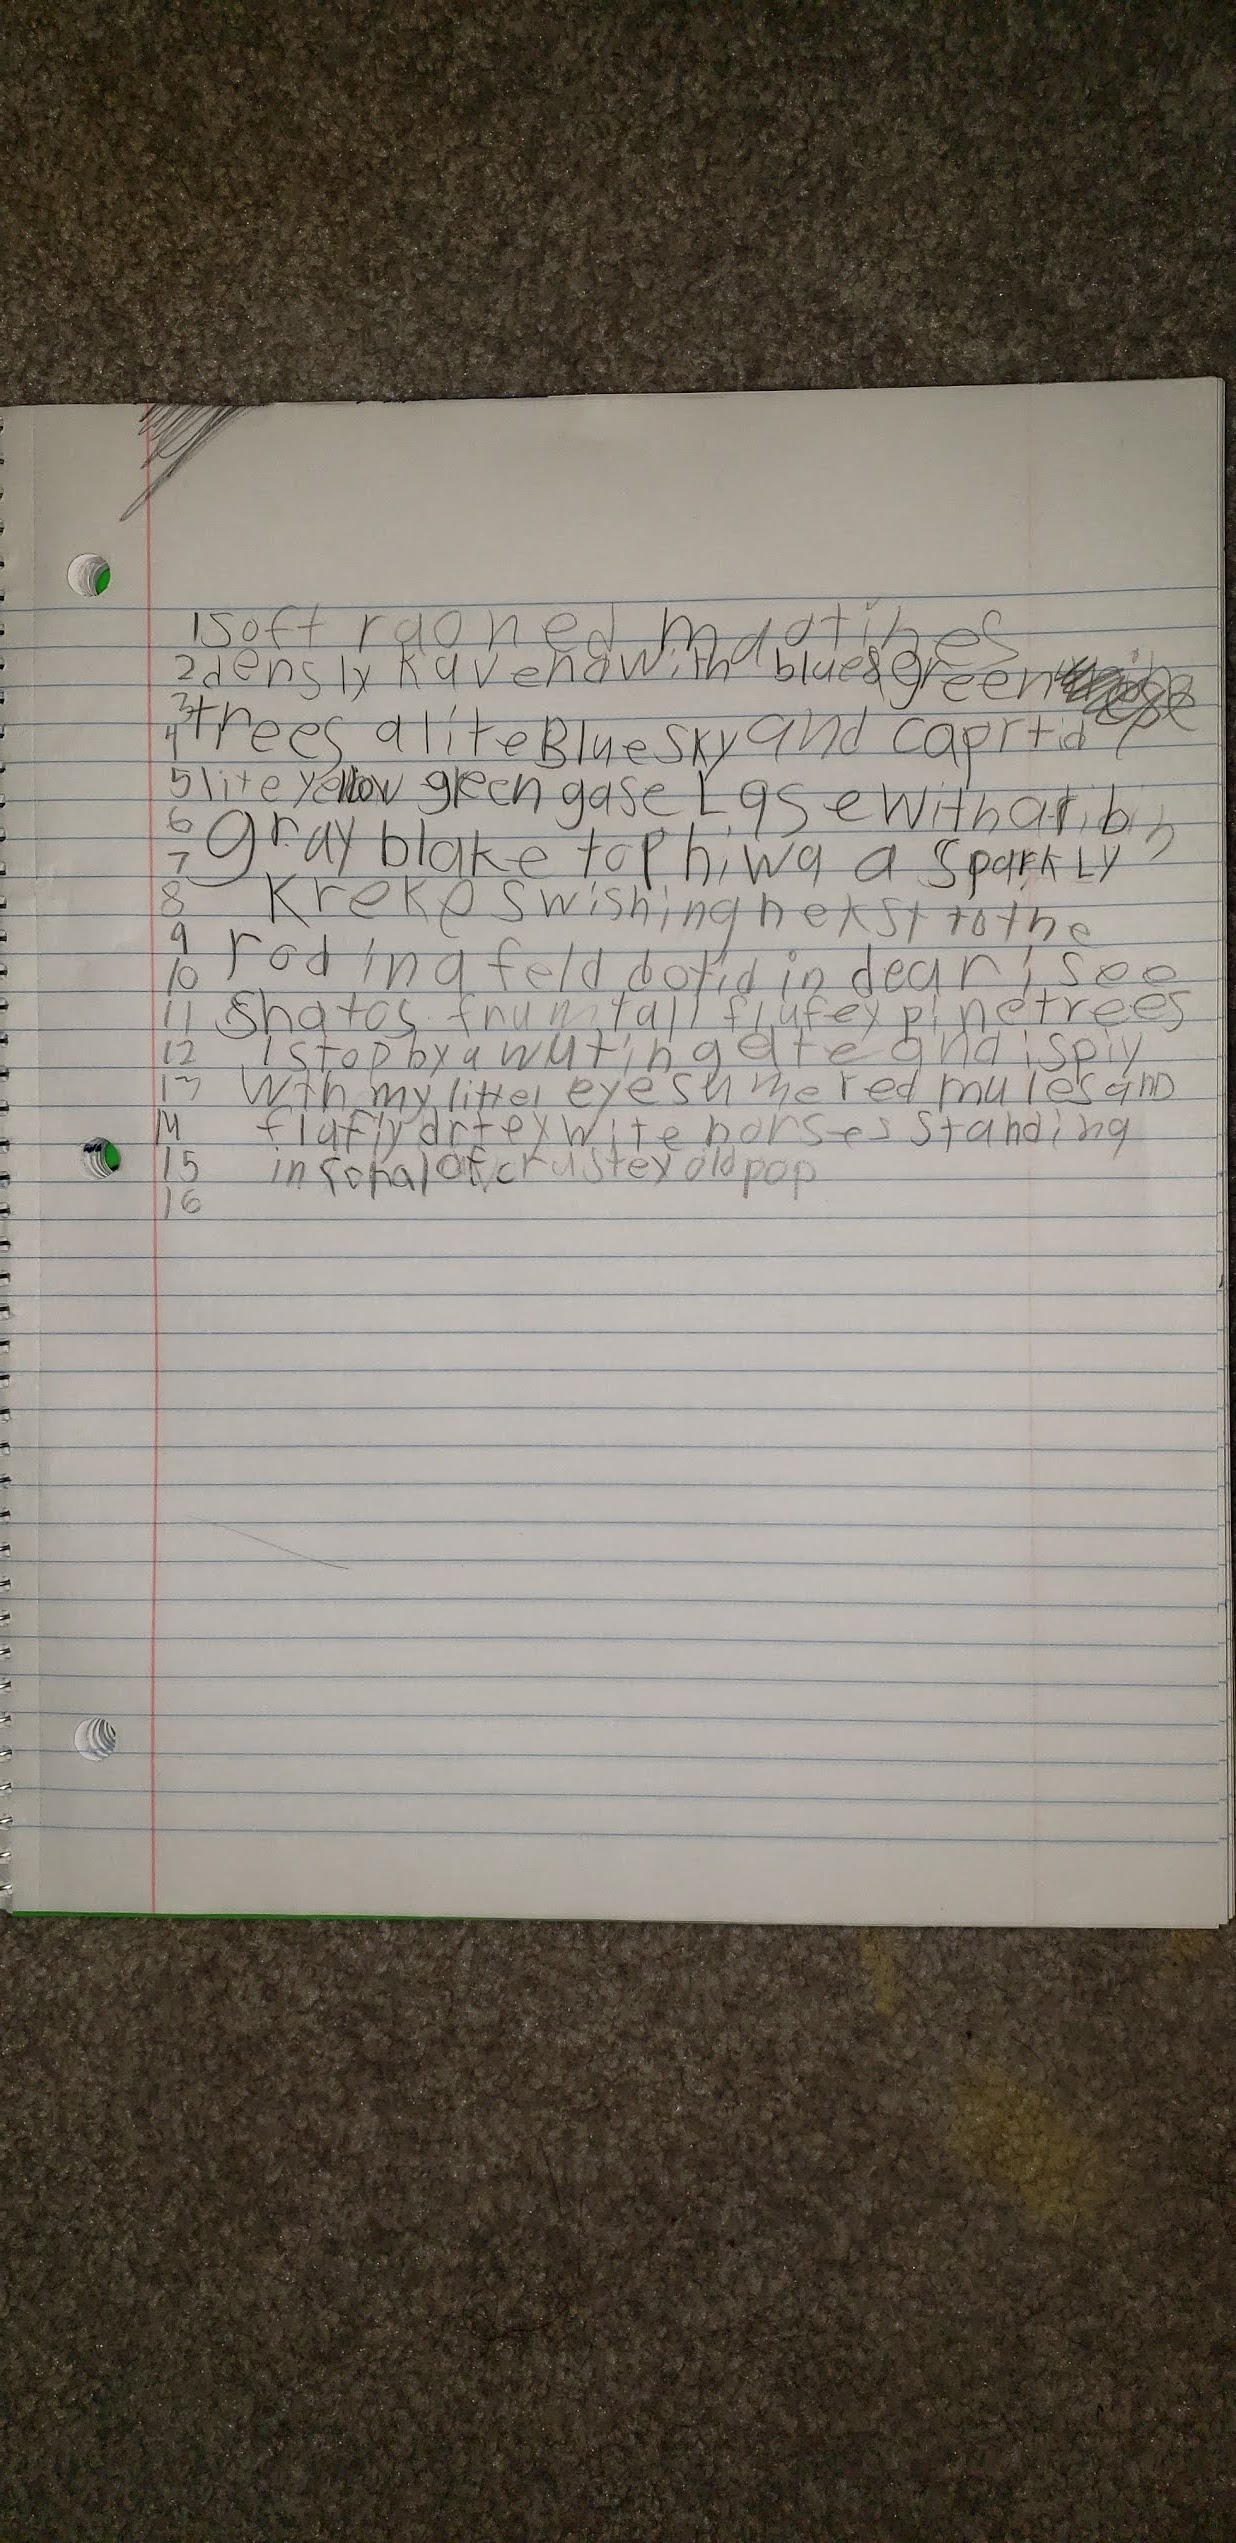 1 soft raoned maotines
2 densly kavend with blue green
3 trees a lite Blue sky and caprtid
4
5 lite yellow green gase Lase with a ribin
6 gray blake top hiwa a sparkly
7
8 kreke swishing nekst to the
9 roding feld dotid in dear i see
10
11 Shatos frum tall flufey pine trees
12 i stop by a wuting ate and i spiy
13 with my littel eye sumered mules and
14 flufiy drtey wite horses standing
15 in of crustey old pop
16